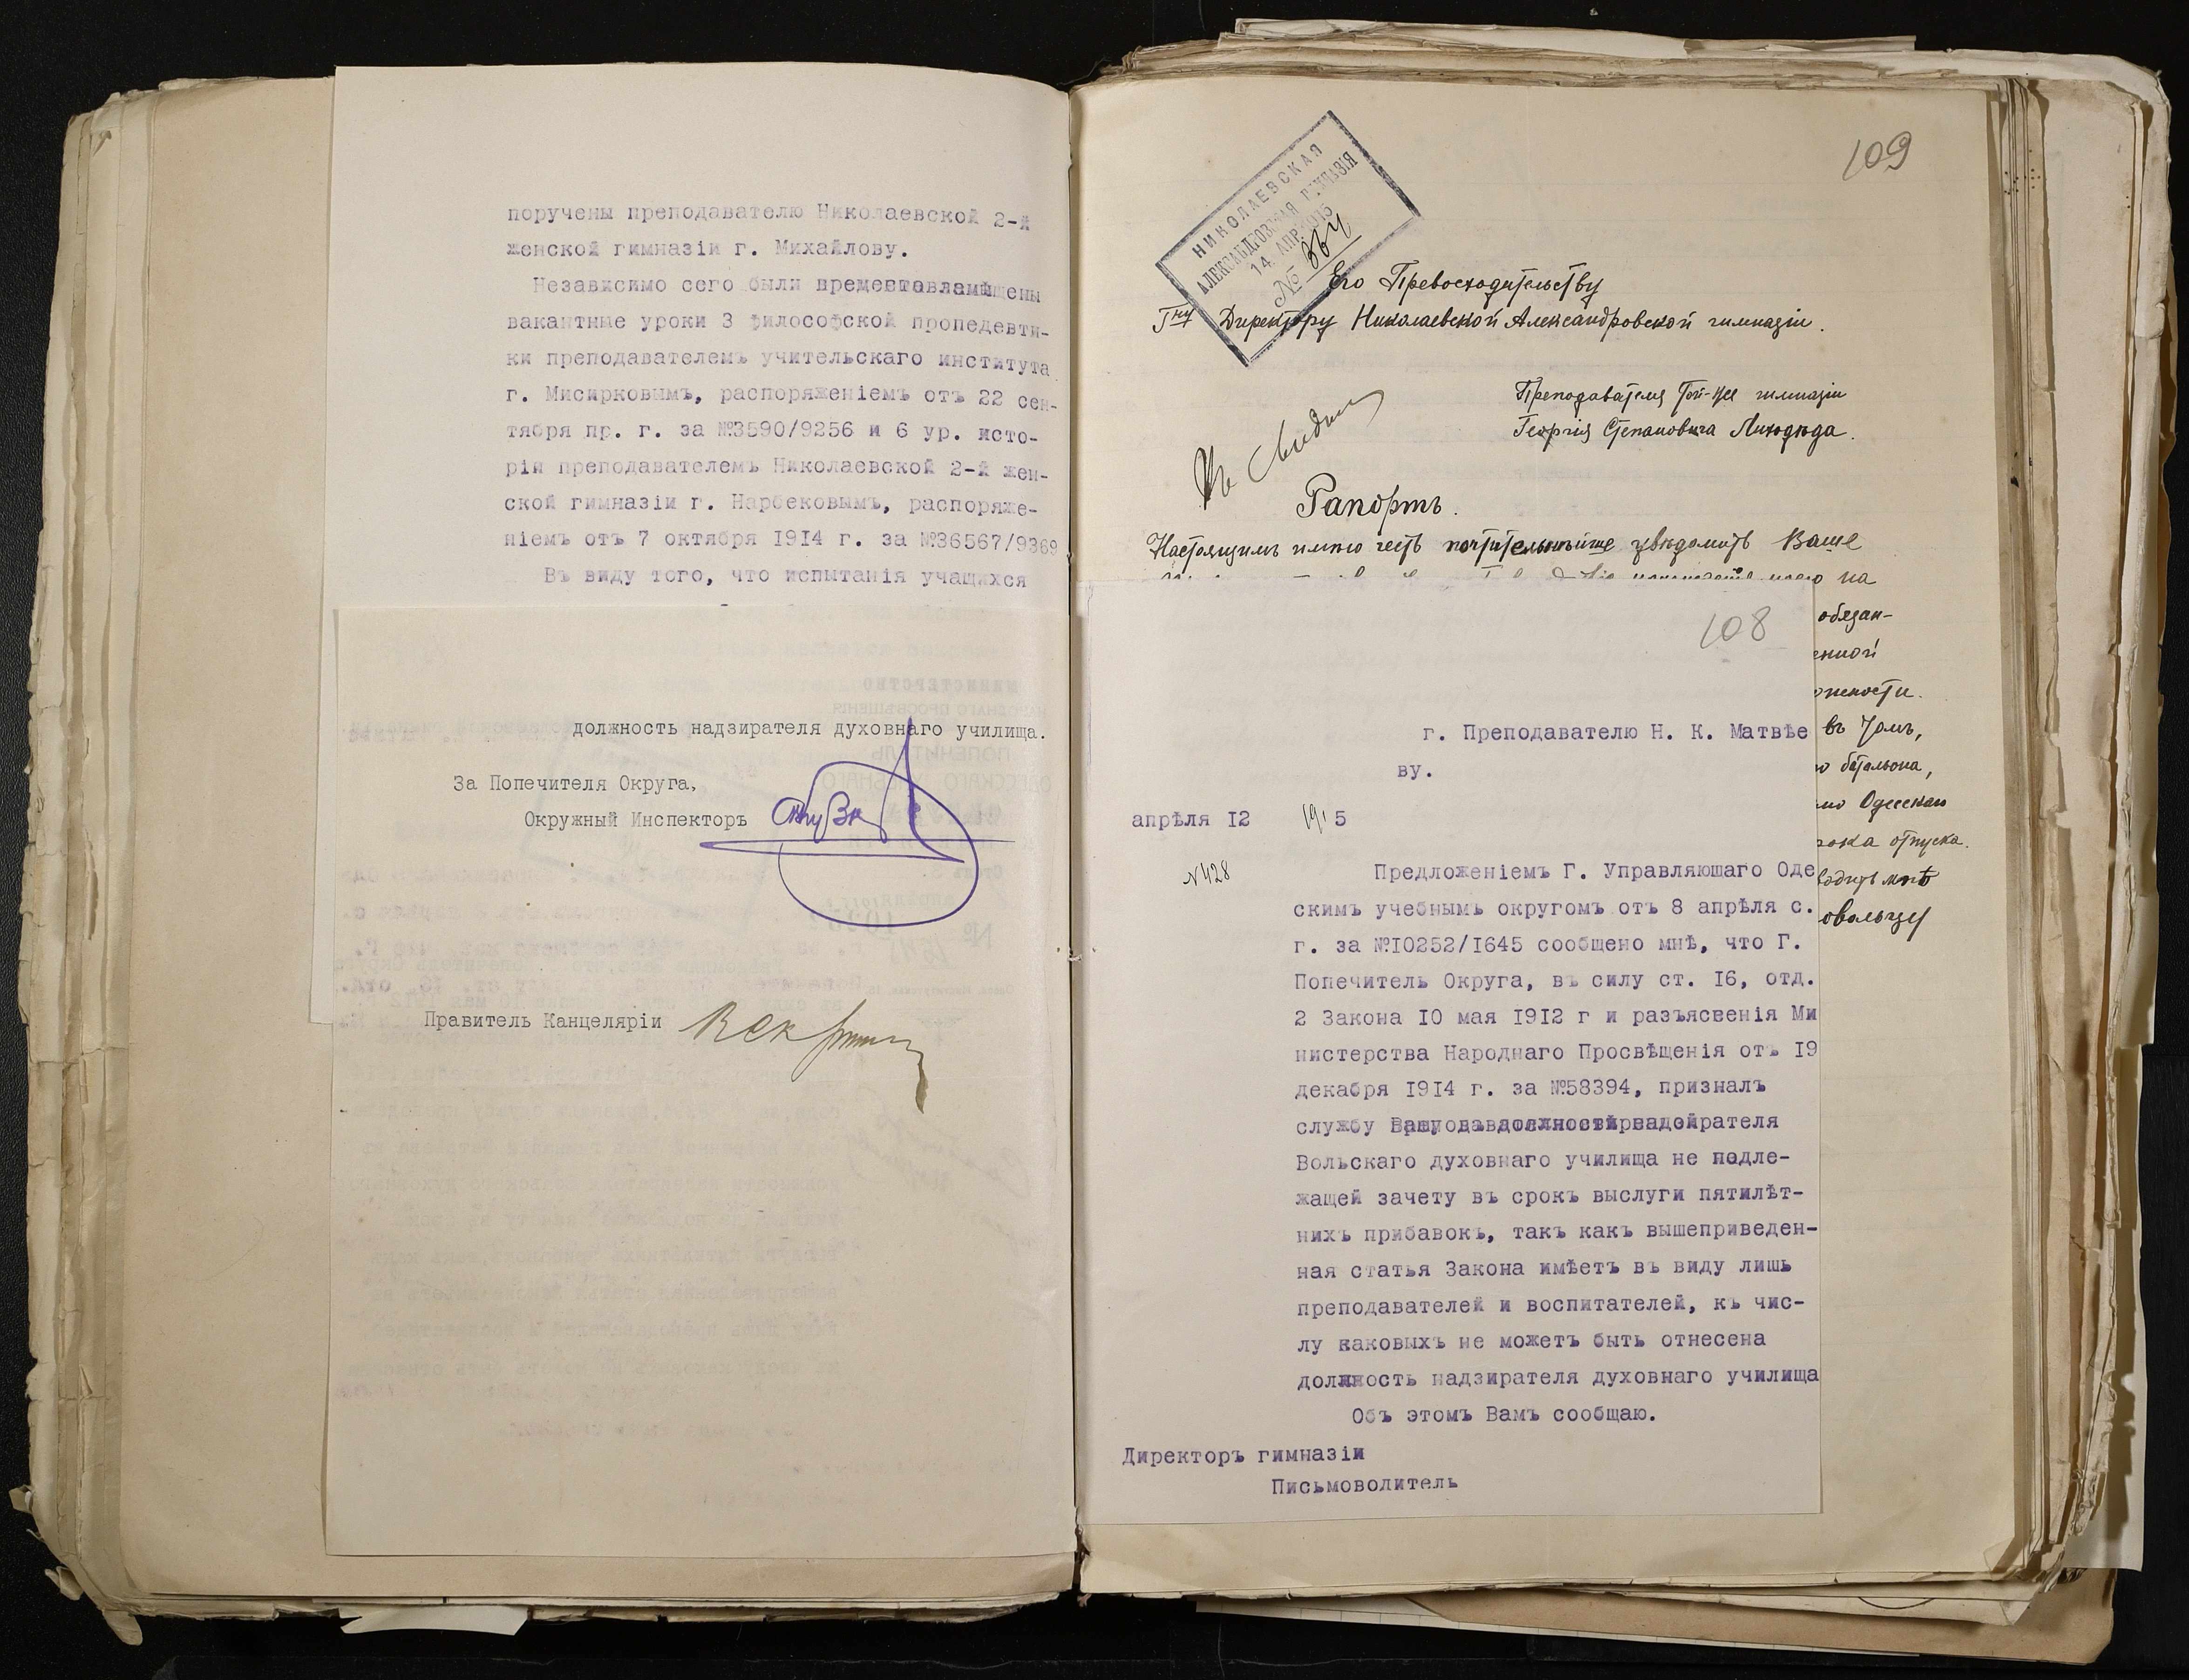 поручены преподавателю Николаевской 2-й
женской гимназіи г. Михайлову.
Независимо сего были
вакантные уроки 3 философской пропедевти-
ки преподавателемъ учительскаго института
г. Мисирковымъ, распоряженіемъ отъ 22 сен-
тября пр. г. за №3590/9256 и 6 ур. исто-
ріи преподавателемъ Николаевской 2-й жен-
ской гимназіи г. Нарбековымъ, распоряже-
ніемъ отъ 7 октября 1914 г. за №36567/9369
Въ виду того, что испытанія учащихся
должность надзирателя духовнаго училища.
За Попечителя Округа,
Окружный Инспекторъ
Правитель Канцеляріи
109
НИКОЛАЕВСКАЯ
АЛЕКСАНДРОВСКАЯ ГИМНАЗІЯ
14 АПР 1915
№ 864
Его Превосходительству
Гну Директору Николаевской Александровской гимназіи.
Преподавателя той-же гимназіи
Георгія Степановича Лиходѣда.
Рапортъ.
Настоящимъ имѣю честь почтительнѣйше увѣдомить Ваше
на
обязан-
енной
въ томъ,
батальона,
Одесскаго
отпуска.
108
г. Преподавателю Н. К. Матвѣе
ву.
апрѣля 12 1915
№428
Предложеніемъ Г. Управляюшаго Оде
скимъ учебнымъ округомъ отъ 8 апрѣля с.
г. за №10252/1645 сообщено мнѣ, что Г.
Попечитель Округа, въ силу ст. 16, отд.
2 Закона 10 мая 1912 г и разъясвенія Ми
нистерства Народнаго Просвѣщенія отъ 19
декабря 1914 г. за №58394, призналъ
службу Вашу
Вольскаго духовнаго училища не подле-
жащей зачету въ срокъ выслуги пятилѣт-
нихъ прибавокъ, такъ какъ вышеприведен-
ная статья Закона имѣетъ въ виду лишь
преподавателей и воспитателей, къ чис-
лу каковыхъ не можетъ быть отнесена
должность надзирателя духовнаго училища
Объ этомъ Вамъ сообщаю.
Директоръ гимназіи
Письмоволитель